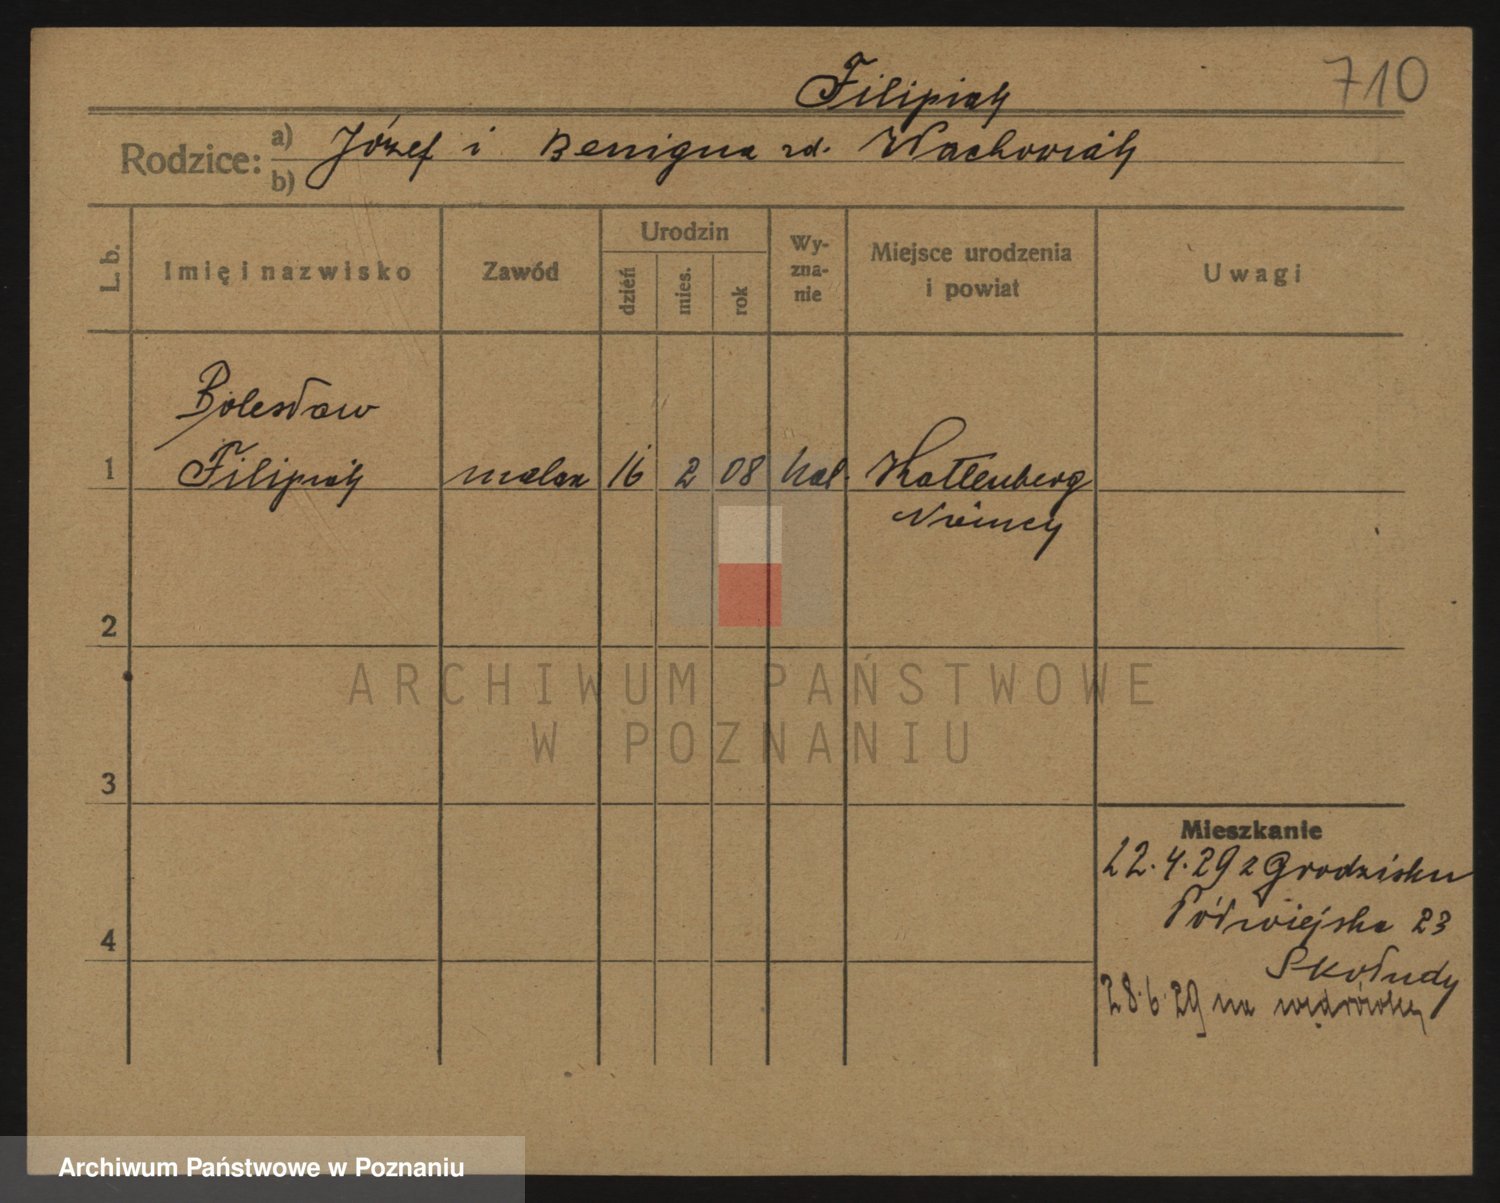 710
Filipiak
Rodzice: a) b) Józef i Benigna zd. Wachowiak
L. b.
Imię i nazwisko
Zawód
Urodzin
dzień
mies.
rok
Wy-
zna-
nie
Miejsce urodzenia
i powiat
Uwagi
Bolesław
1 Filipiak malarz 16 2 08 kat. Kattenberg
Niemcy
2
3
4
Mieszkanie
22.4.29 z Grodziska
Półwiejska 23
Skołudy
28.6.29 na wędrówkę
ARCHIWUM PAŃSTWOWE
W POZNANIU
Archiwum Państwowe w Poznaniu